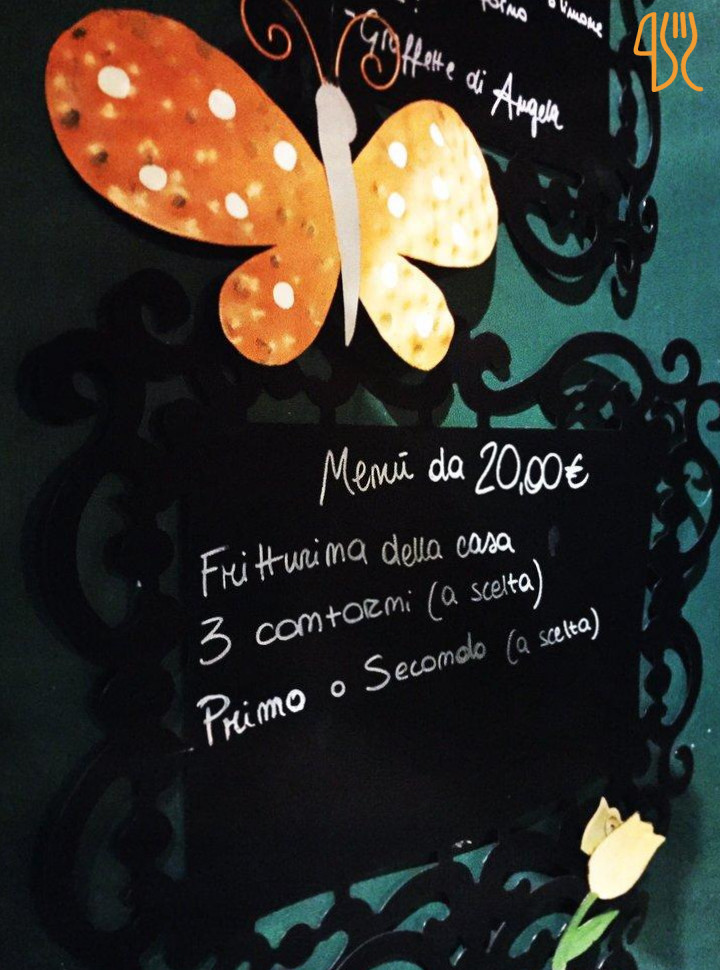 -Graffette di Angela
Menù da 20,00€
Fritturina della casa
3 contorni (a scelta)
Primo o Secondo (a scelta)